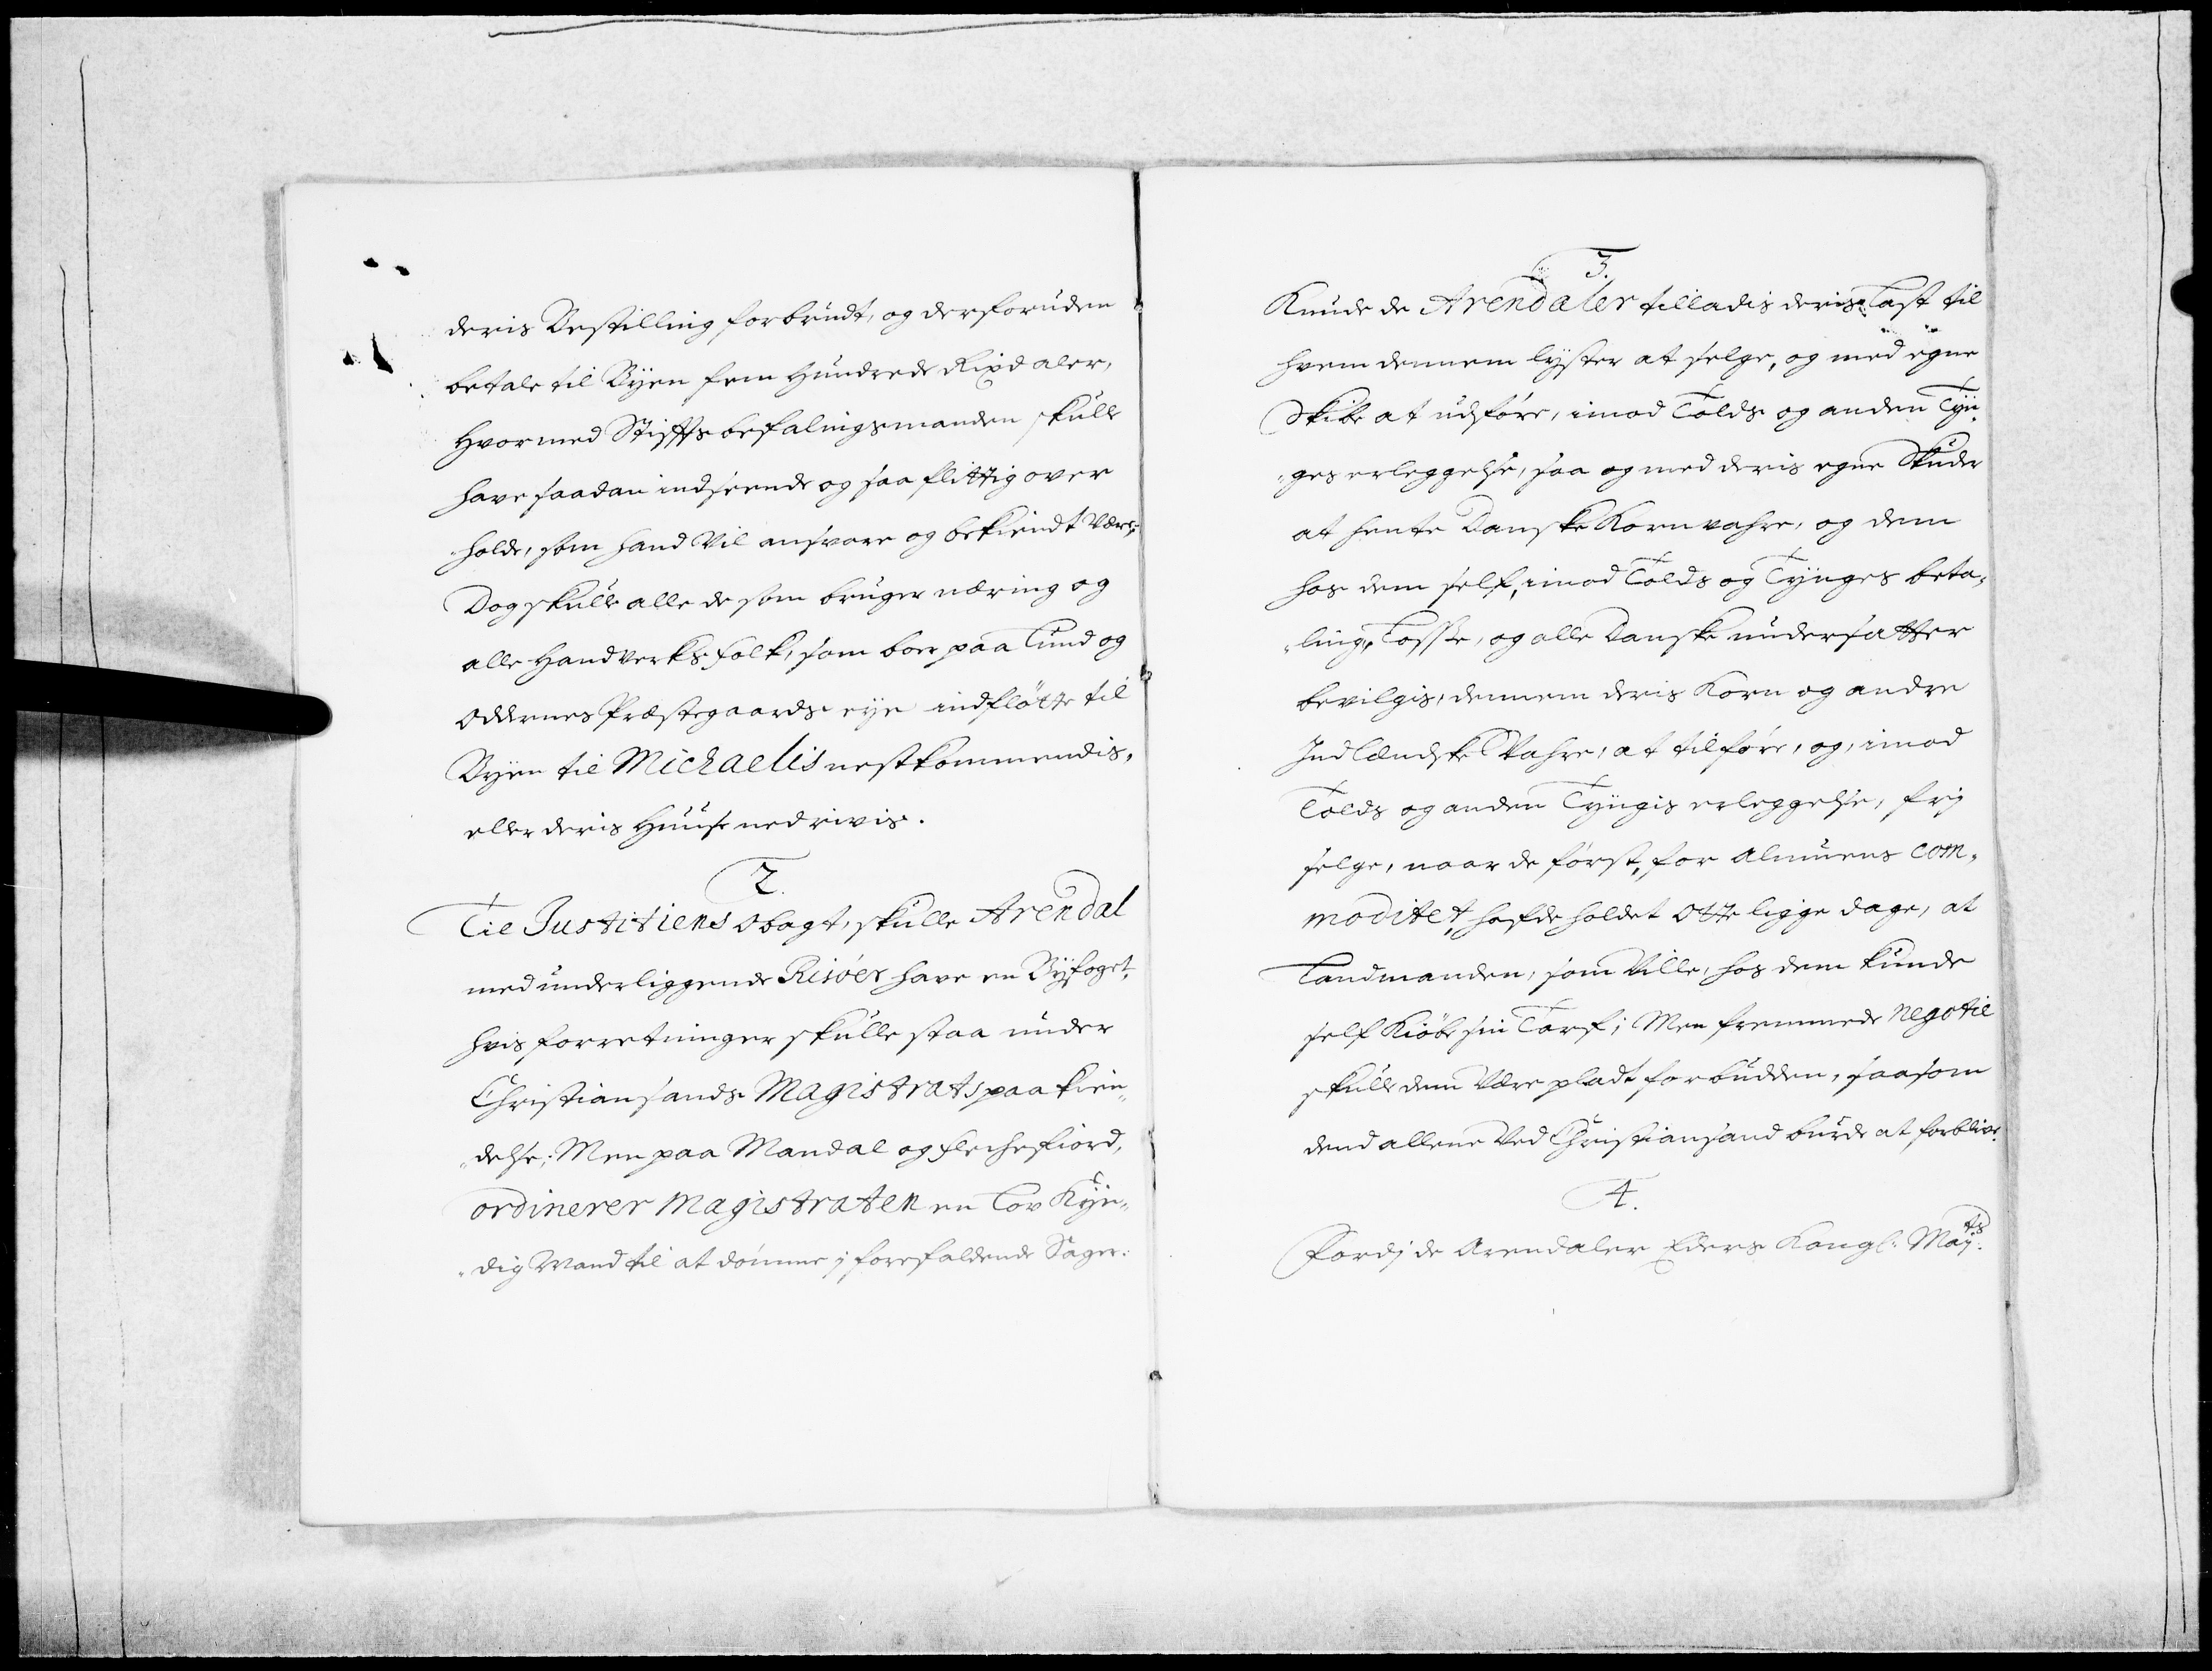 deris Bestilling forbrudt, og derforuden
betale til Byen fem Hundrede Rixdaler,
Hvormed Stiftsbefalingsmanden skulle
have saadan indseende og saa flittig over
holde, som hand Vil ansvare og bekiendt Være,
Dog skulle alle de som bruger næring og
alle Handverksfolk, som boer paa Lund og
Oddernes Præstegaards eye indflötte til
Byen til Michaelis nestkommendis,
eller deris Huuse nedrivis.
2.
Til Justitiens Obagt, skulle Arendal
med underliggende Risöer have en Byfoget,
hvis forretninger skulle staa under
Christiansands Magistrats paakien„
„delse; Men paa Mandal og Flechefiord,
ordinerer Magistraten en Lov Kyn„
„dig Mand til at dömme j forefaldende Sager.
3.
Kunde de Arendaler tilladis deris Last til
hvem dennem lyster at selge, og med egne
Skibe at udföre, imod Tolds og anden Tyn„
„ges erleggelse, saa og med deris egne Skuder
at hente Danske Kornvahre, og dem
hos dem self, imod Tolds og Tynges beta„
„ling, Losse, og alle Danske undersatter
bevilgis, dennem deris Korn og andre
Indlændske Vahre, at tilföre, og, imod
Tolds og anden Tyngis erleggelse, frj
selge, naar de först, for Almuens com„
moditet, hafde holdet Otte ligge dage, at
Landmanden, som Ville, hos dem kunde
self Kiöbe sin Tarf; Men fremmede Negotie
skulle dem Være pladt forbudden, saasom
dend allene Ved Christiansand burde at forblive.
4.
Fordj de Arendaler Eders Kongl: Mayts